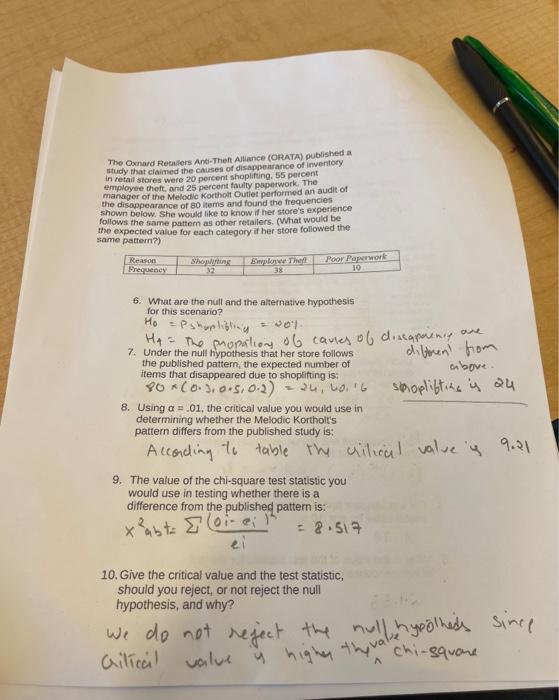 The Oxnard Retailers Anti-Theft Alliance (ORATA) published a
study that claimed the causes of disappearance of inventory
in retail stores were 20 percent shoplifting, 55 percent
employee theft, and 25 percent faulty paperwork. The
manager of the Melodic Kortholt Outlet performed an audit of
the disappearance of 80 items and found the frequencies
shown below. She would like to know if her store's experience
follows the same pattern as other retailers. (What would be
the expected value for each category if her store followed the
same pattern?)
Reason Shoplifting Employee Theft Poor Paperwork
Frequency 32 38 10
6. What are the null and the alternative hypothesis
for this scenario?
H0 = Pshoplifting = 20%
H1 = The proportions of causes of are
different from
above.
7. Under the null hypothesis that her store follows
the published pattern, the expected number of
items that disappeared due to shoplifting is:
80 × (0.3, 0.5, 0.2) = 24, 40, 16 shoplifting is 24
8. Using α = .01, the critical value you would use in
determining whether the Melodic Kortholt's
pattern differs from the published study is:
According to table the critical value is 9.21
9. The value of the chi-square test statistic you
would use in testing whether there is a
difference from the published pattern is:
x² = Σ (oi - ei)² / ei = 8.517
10. Give the critical value and the test statistic,
should you reject, or not reject the null
hypothesis, and why?
We do not reject the null hypothesis since
critical value is higher than value chi-square